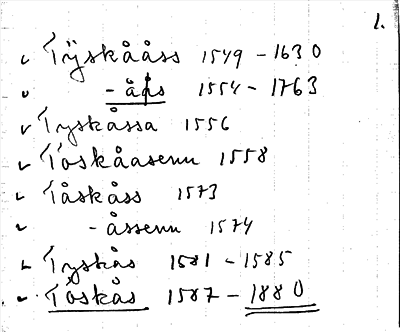 1.
Tÿskååss 1549 - 1630
- åås 1554 - 1763
Tyskåssa 1556
Toskåasenn 1558
Tåskåss 1573
- åssenn 1574
Tyskås 1581 - 1585
Töskås 1587 - 1880